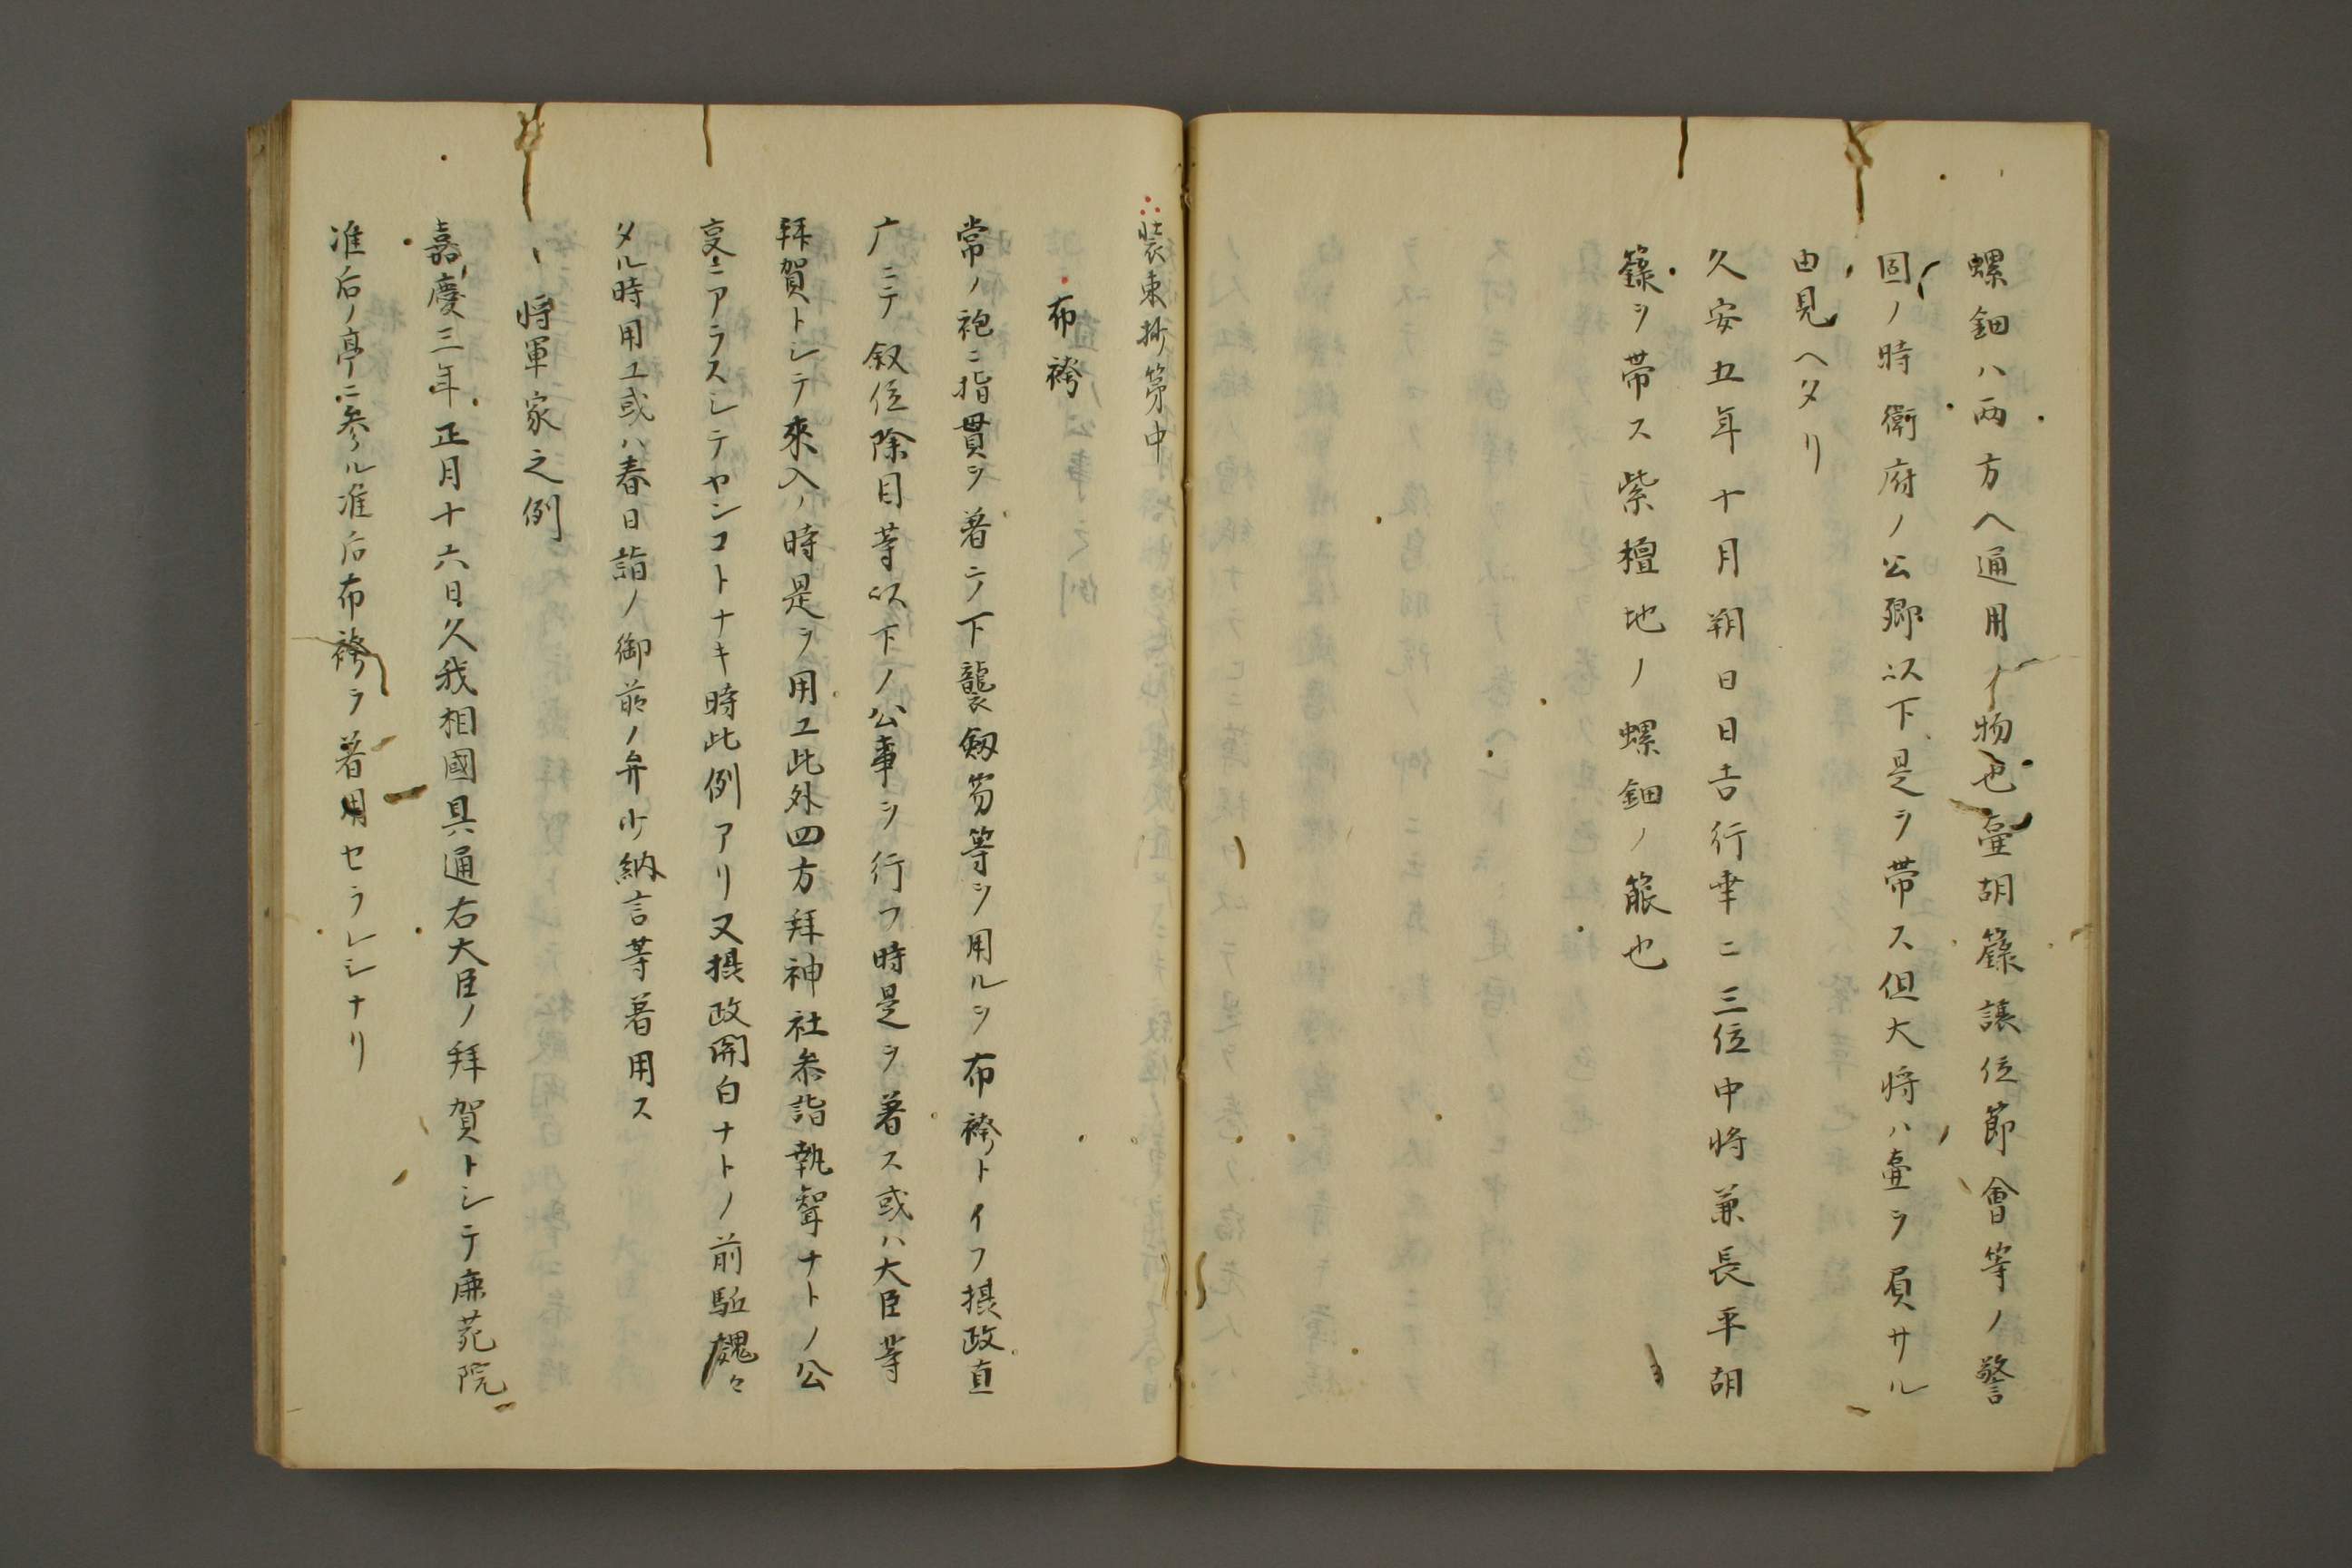 螺鈿ハ両方ヘ通用ノ物也壷胡籙譲位節會等ノ警
固ノ時衛府ノ公卿以下是ヲ帯ス但大将ハ壷ヲ負サル
由見ヘタリ
久安五年十月朔日日吉行幸ニ三位中将兼長平胡
籙ヲ帯ス紫檀地ノ螺鈿ノ箙也
装束抄第中
布袴
常ノ袍ニ指貫ヲ著シノ下襲劔笏等ヲ用ルヲ布袴トイフ摂政直
广ニテ叙位除目等以下ノ公事ヲ行フ時是ヲ著ス或ハ大臣等
拜賀トシテ來入ノ時是ヲ用ユ此外四方拜神社参詣執聟ナトノ公
事ニアラスシテヤンコトナキ時此例アリ又摂政関白ナトノ前駈巍々
タル時用ユ或ハ春日詣ノ御前ノ弁少納言等著用ス
、将軍家之例
嘉慶三年正月十六日久我相國具通右大臣ノ拜賀トシテ鹿苑院
准后ノ亭ニ参ル准后布袴ヲ著用セラレシナリ